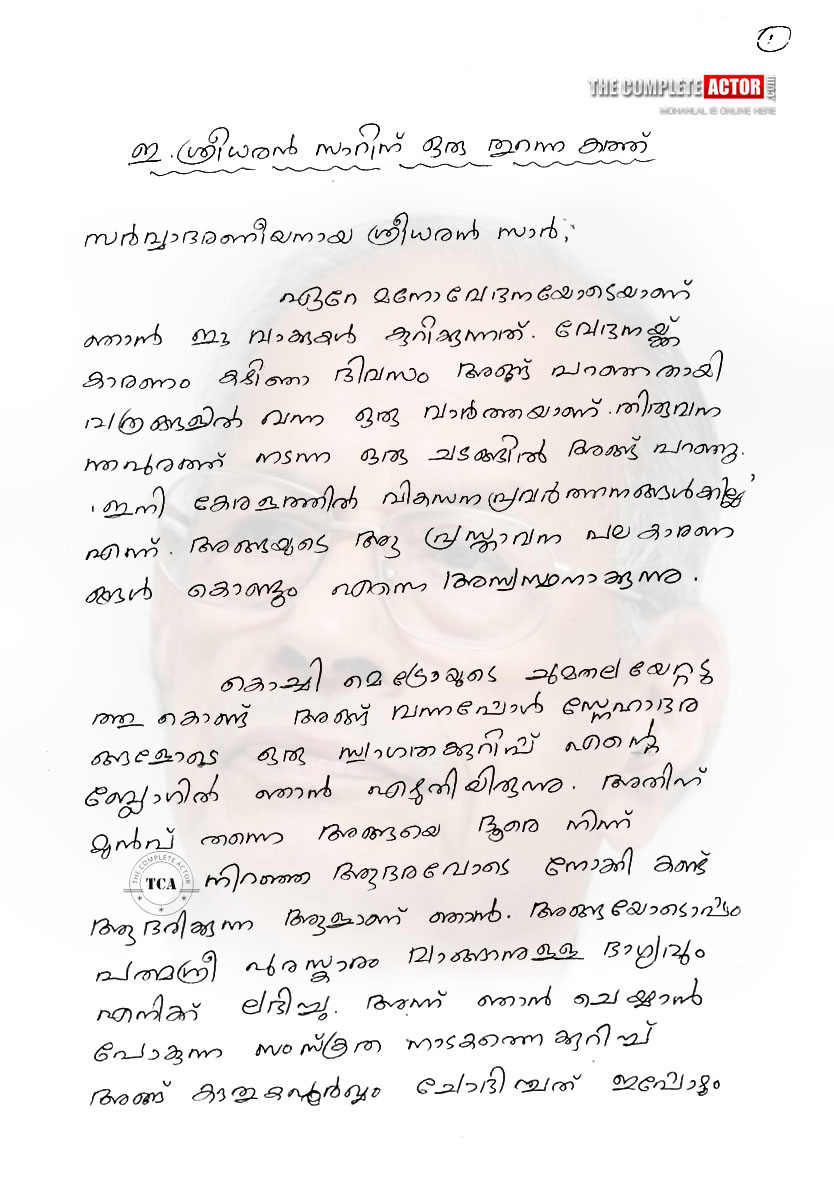 1
THE COMPLETE ACTOR .COM
MOHANLAL IS ONLINE HERE
ഇ. ശ്രീധരൻ സാറിന് ഒരു തുറന്ന കത്ത്
സർവ്വാദരണീയനായ ശ്രീധരൻ സാർ,
ഏറേ മനോവേദനയോടെയാണ്
ഞാൻ ഈ വാക്കുകൾ കുറിക്കുന്നത്. വേദനയ്ക്ക്
കാരണം കഴിഞ്ഞ ദിവസം അങ്ങ് പറഞ്ഞതായി
പത്രങ്ങളിൽ വന്ന ഒരു വാർത്തയാണ്. തിരുവന
ന്തപുരത്ത് നടന്ന ഒരു ചടങ്ങിൽ അങ്ങ് പറഞ്ഞു.
'ഇനി കേരളത്തിൽ വികസനപ്രവർത്തനങ്ങൾക്കില്ല'
എന്ന്. അങ്ങയുടെ ആ പ്രസ്താവന പല കാരണ
ങ്ങൾ കൊണ്ടും എന്നെ അസ്വസ്ഥനാക്കുന്നു.
കൊച്ചി മെട്രോയുടെ ചുമതലയേറ്റെടു
ത്തു കൊണ്ട് അങ്ങ് വന്നപ്പോൾ സ്നേഹാദര
ങ്ങളോടെ ഒരു സ്വാഗതക്കുറിപ്പ് എന്റെ
ബ്ലോഗിൽ ഞാൻ എഴുതിയിരുന്നു. അതിന്
മുൻപ് തന്നെ അങ്ങയെ ദൂരെ നിന്ന്
THE COMPLETE ACTOR TCA നിറഞ്ഞ ആദരവോടെ നോക്കി കണ്ട്
ആദരിക്കുന്ന ആളാണ് ഞാൻ. അങ്ങയോടൊപ്പം
പത്മശ്രീ പുരസ്കാരം വാങ്ങാനുള്ള ഭാഗ്യവും
എനിക്ക് ലഭിച്ചു. അന്ന് ഞാൻ ചെയ്യാൻ
പോകുന്ന സംസ്കൃത നാടകത്തെക്കുറിച്ച്
അങ്ങ് കൗതുകപൂർവ്വം ചോദിച്ചത് ഇപ്പോഴും